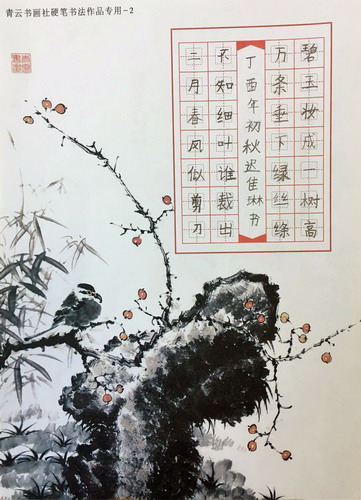 青云书画社硬笔书法作品专用-2
碧玉妆成一树高
万条垂下绿丝绦
丁酉年初秋迟佳琳书
不知细叶谁裁出
二月春风似剪刀